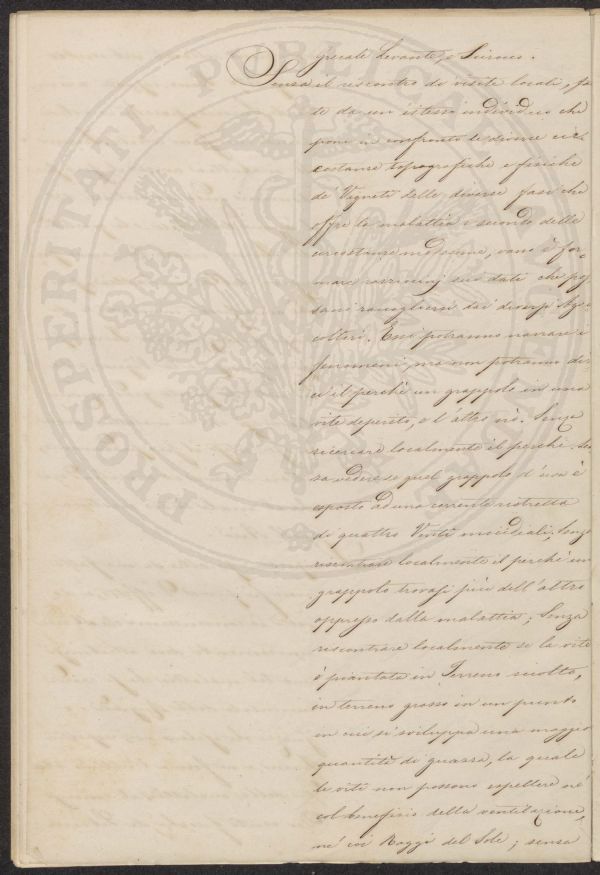 grecale Levante, e Scirocco.
Senza il riscontro di visite locali, fat
te da un istesso individuo che
pone in confronto le diverse cir
costanze topografiche e fisiche
de' Vigneti delle diverse fasi che
offre la malattia a seconda delle
circostanze medesime, vano è for
mare raziocinj sui dati che pos
sansi raccogliersi dai diversi Agri
coltori. Essi potranno narrare i
fenomeni, ma non potranno dir
ci il perchè un grappolo in una
vite deperito, e l'altro nò. Senza
ricercare localmente il perchè. Sen
za vedere se quel grappolo d'uva è
esposto ad una corrente ristretta
di quattro Venti micidiali; Senza
riscontrare localmente il perchè un
grappolo trovasi più dell'altro
oppresso dalla malattia; Senza
riscontrare localmente se la vite
è piantata in Terreno sciolto,
in terreno grosso in un punto
in cui si sviluppa una maggior
quantità di guazza, la quale
le viti non possono espellere nè
col beneficio della ventilazione,
nè coi Raggi del Sole; senza
PROSPERITATI PUBLICAE